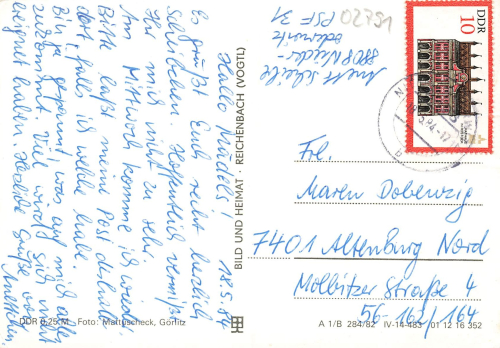 18.5.84
Hallo Mädels!
Es grüßt Euch recht herzlich
Scheibchen. Hoffentlich vermißt
Ihr mich nicht zu sehr.
Am Mittwoch komme ich wieder.
Bitte laßt meine Post
dort, falls ich welche habe.
Bin ja gespannt, was auf mich
zukommt. Viel wird sich nicht
ereignet haben. Herzliche Grüße von
BILD UND HEIMAT · REICHENBACH (VOGTL)
DDR 0,25 M Foto: Mattuscheck, Görlitz
02751
PSF 31
DDR
10
Frl.
Maren Dobenzig
7401 Altenburg Nord
Molbitzer Straße 4
56-162/164
A 1/B 284/82 IV-14-483 01 12 16 352